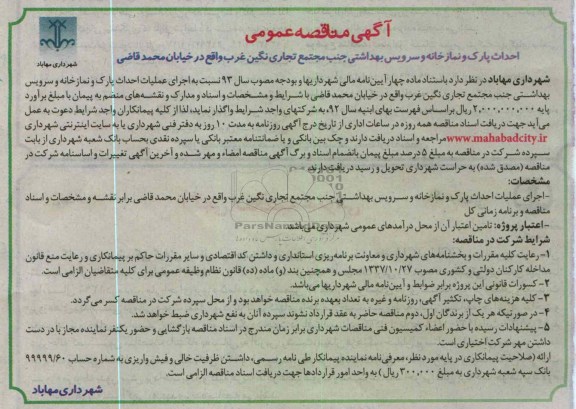 آگهی مناقصه عمومی
احداث پارک و نمازخانه و سرویس بهداشتی جنب مجتمع تجاری نگین غرب واقع در خیابان محمد قاضی
شهرداری مهاباد
شهرداری مهاباد در نظر دارد باستناد ماده چهار آیین‌نامه مالی شهرداریها و بودجه مصوب سال ۹۳ نسبت به اجرای عملیات احداث پارک و نمازخانه و سرویس
بهداشتی جنب مجتمع تجاری نگین غرب واقع در خیابان محمد قاضی با شرایط و مشخصات و اسناد و مدارک و نقشه‌های منضم به پیمان با مبلغ برآورد
پایه ۲,۰۰۰,۰۰۰,۰۰۰ ریال براساس فهرست بهای ابنیه سال ۹۲، به شرکتهای واجد شرایط واگذار نماید، لذا از کلیه پیمانکاران واجد شرایط دعوت به عمل
می‌آید جهت دریافت اسناد مناقصه همه روزه در ساعات اداری از تاریخ درج آگهی روزنامه به مدت ۱۰ روز به دفتر فنی شهرداری یا به سایت اینترنتی شهرداری
www.mahabadcity.ir مراجعه و اسناد دریافت دارند و چک بین بانکی و یا ضمانتنامه معتبر بانکی یا سپرده نقدی بحساب بانک شعبه شهرداری از بابت
سپرده شرکت در مناقصه به مبلغ ۵ درصد مبلغ پیمان بانضمام اسناد و برگ آگهی مناقصه امضاء و مهر شده و آخرین آگهی تغییرات و اساسنامه شرکت در
مناقصه (مصدق شده) به حراست شهرداری تحویل و رسید دریافت دارند.
مشخصات:
-اجرای عملیات احداث پارک و نمازخانه و سرویس بهداشتی جنب مجتمع تجاری نگین غرب واقع در خیابان محمد قاضی برابر نقشه و مشخصات و اسناد
مناقصه و برنامه زمانی کل
-اعتبار پروژه: تامین اعتبار آن از محل درآمدهای عمومی شهرداری می‌باشد.
شرایط شرکت در مناقصه:
۱- رعایت کلیه مقررات و بخشنامه‌های شهرداری و معاونت برنامه‌ریزی استانداری و داشتن کد اقتصادی و سایر مقررات حاکم بر پیمانکاری و رعایت منع قانون
مداخله کارکنان دولتی و کشوری مصوب ۱۳۳۷/۱۰/۲۷ مجلس و همچنین بند (و) ماده (ده) قانون نظام وظیفه عمومی برای کلیه متقاضیان الزامی است.
۲- کسورات قانونی این پروژه برابر ضوابط و آیین‌نامه مالی شهرداریها می‌باشد.
۳- کلیه هزینه‌های چاپ، تکثیر آگهی، روزنامه و غیره به تعداد بعهده برنده مناقصه خواهد بود و از محل سپرده شرکت در مناقصه کسر می‌گردد.
۴- در صورتیکه هر یک از برندگان اول، دوم مناقصه حاضر به عقد قرارداد نشوند سپرده آنان به نفع شهرداری ضبط خواهد شد.
۵- پیشنهادات رسیده با حضور اعضاء کمیسیون فنی مناقصات شهرداری برابر زمان مندرج در اسناد مناقصه بازگشایی و حضور یکنفر نماینده مجاز با در دست
داشتن مهر شرکت اختیاری است.
ارائه (صلاحیت پیمانکاری در پایه مورد نظر، معرفی‌نامه نماینده پیمانکار طی نامه رسمی، داشتن ظرفیت خالی و فیش واریزی به شماره حساب ۹۹۹۹۹/۶۰
بانک سپه شعبه شهرداری به مبلغ ۳۰۰,۰۰۰ ریال) به واحد امور قراردادها جهت دریافت اسناد مناقصه الزامی است.
شهرداری مهاباد